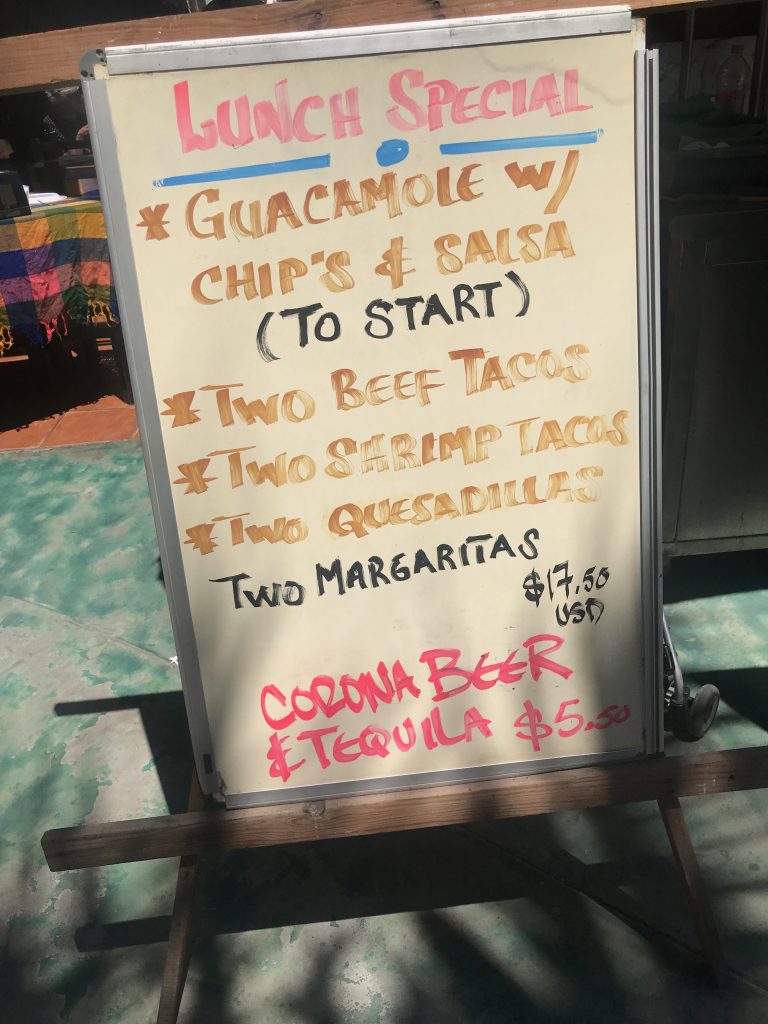 LUNCH SPECIAL
* GUACAMOLE W/
CHIP'S & SALSA
(TO START)
* TWO BEEF TACOS
* TWO SHRIMP TACOS
* TWO QUESADILLAS
TWO MARGARITAS
$17.50
USD
CORONA BEER
& TEQUILA $5.50